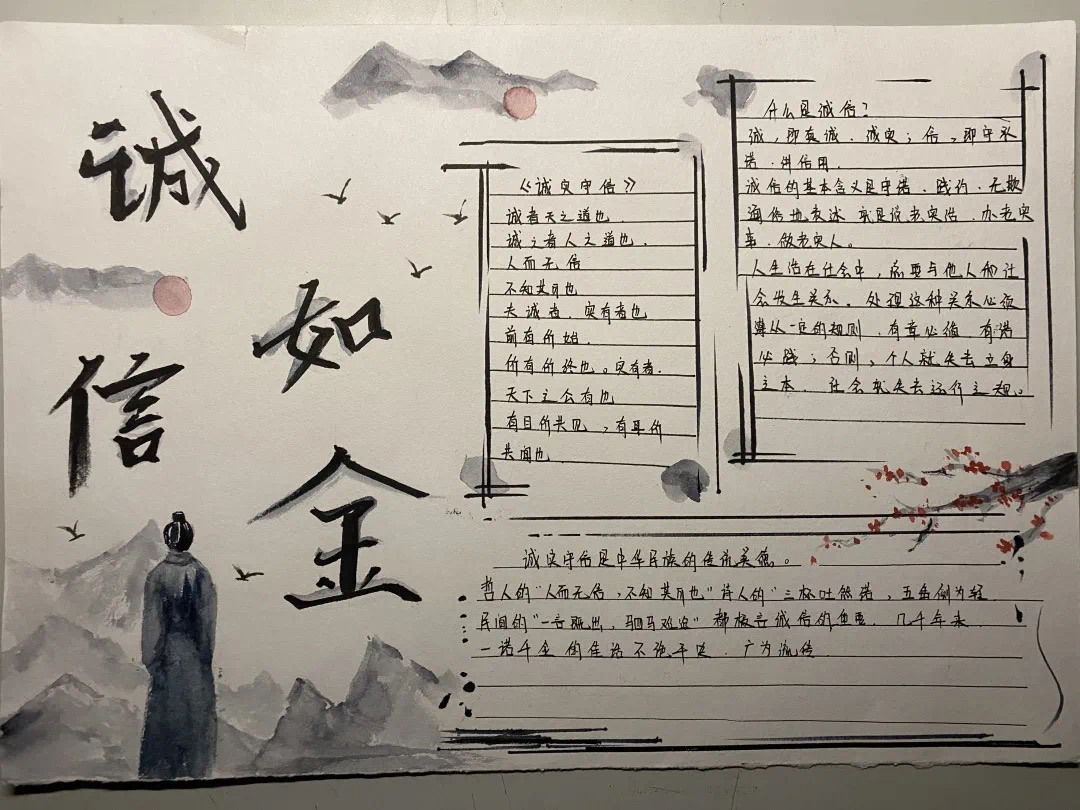 诚信
如金
《诚实守信》
诚者天之道也
诚之者人之道也.
人而无信
不知其可也
夫诚者、实有者也
前有所始.
所有所终也。实有者.
天下之公有也
有目所共见,有耳所
共闻也
什么是诚信?
诚,即真诚、诚实;信,即守承
诺、讲信用.
诚信的基本含义是守诺、践约、无欺
通俗地表述 就是说老实话、办老实
事、做老实人。
人生活在社会中,前要与他人和社
会发生关系。处理这种关系必须
遵从一定的规则,有章必循 有诺
必践;否则,个人就失去立身
之本、社会就失去运行之规。
诚实守信是中华民族的传统美德。
哲人的“人而无信,不知其可也”诗人的“三杯吐然诺,五岳倒为轻
民间的“一言既出,驷马难追”都极言诚信的重要、几千年来
一诺千金的佳话不绝于史、广为流传